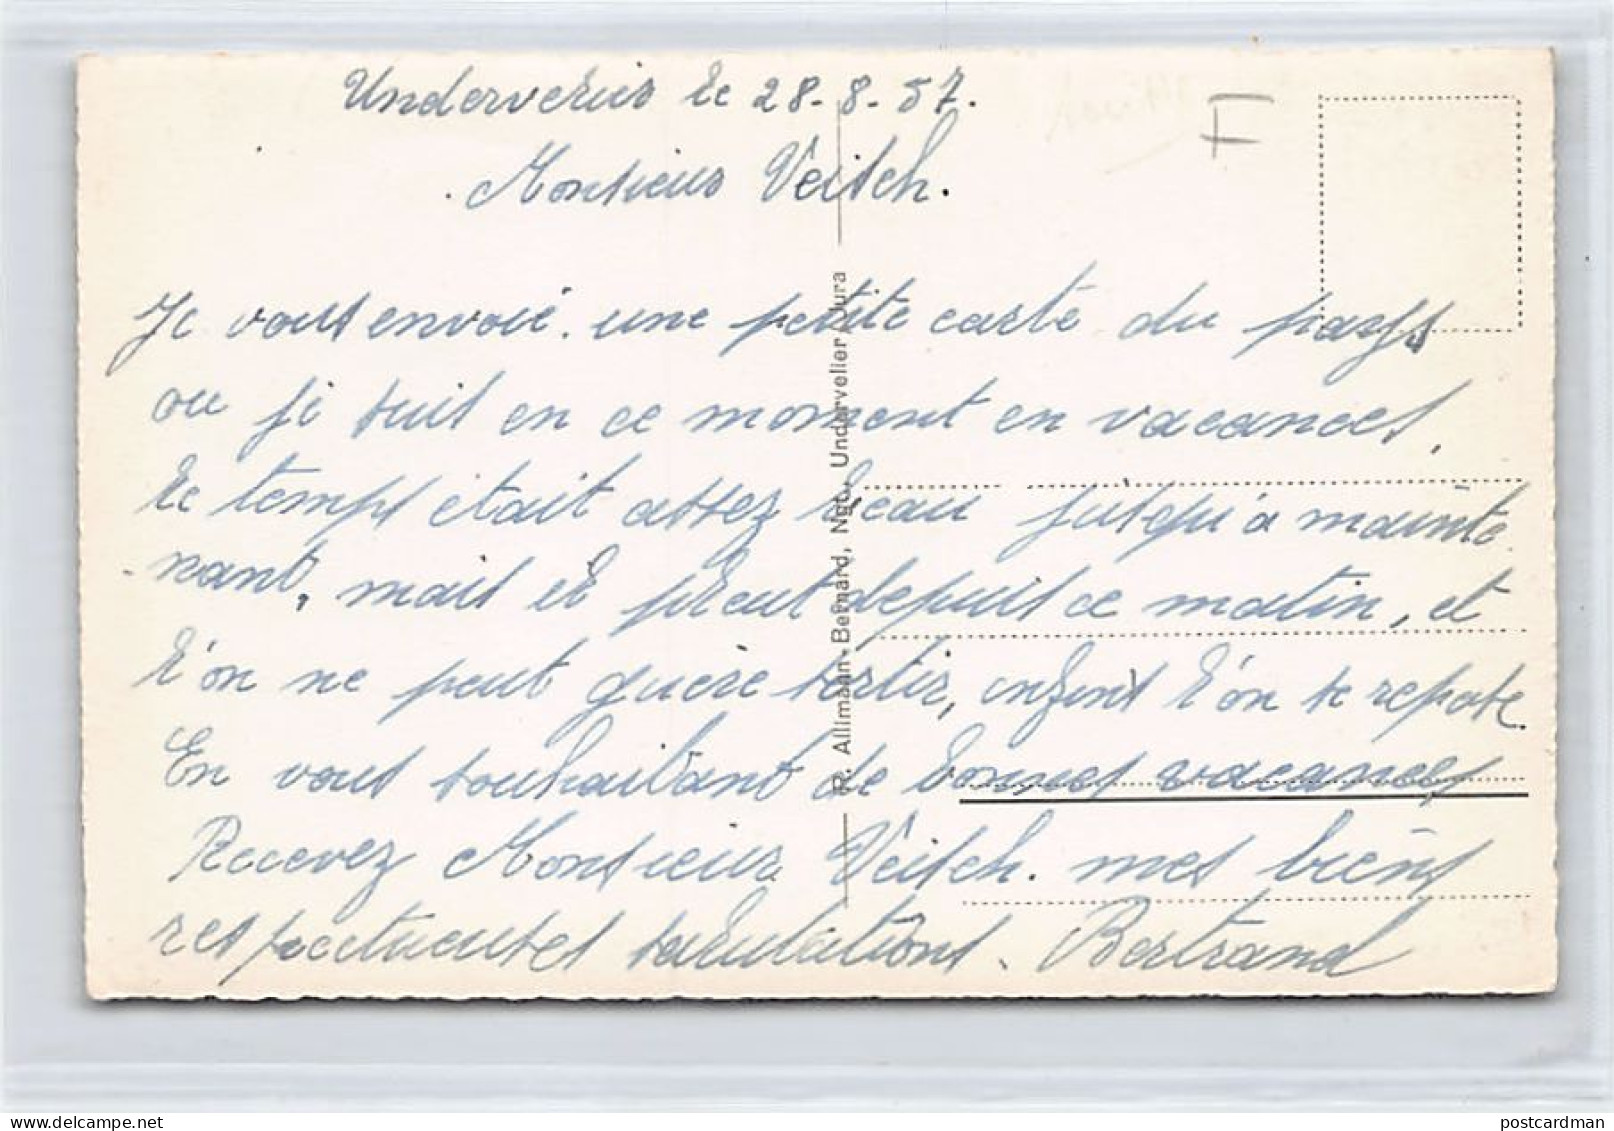 Undervelier le 28-8-57.
Monsieur Veitch.
F
Je vous envoie une petite carte du pays
ou je suis en ce moment en vacances,
Le temps était assez beau jusqu'à mainte
nant, mais il pleut depuis ce matin, et
l'on ne peut guère sortir, enfin l'on se repose.
En vous souhaitant de bonnes vacances
Recevez Monsieur Veitch. mes biens
respectueuses salutations. Bertrand
R. Allimann-Bernard, Ngt., Undervelier Jura
postcardman
delcampe.net